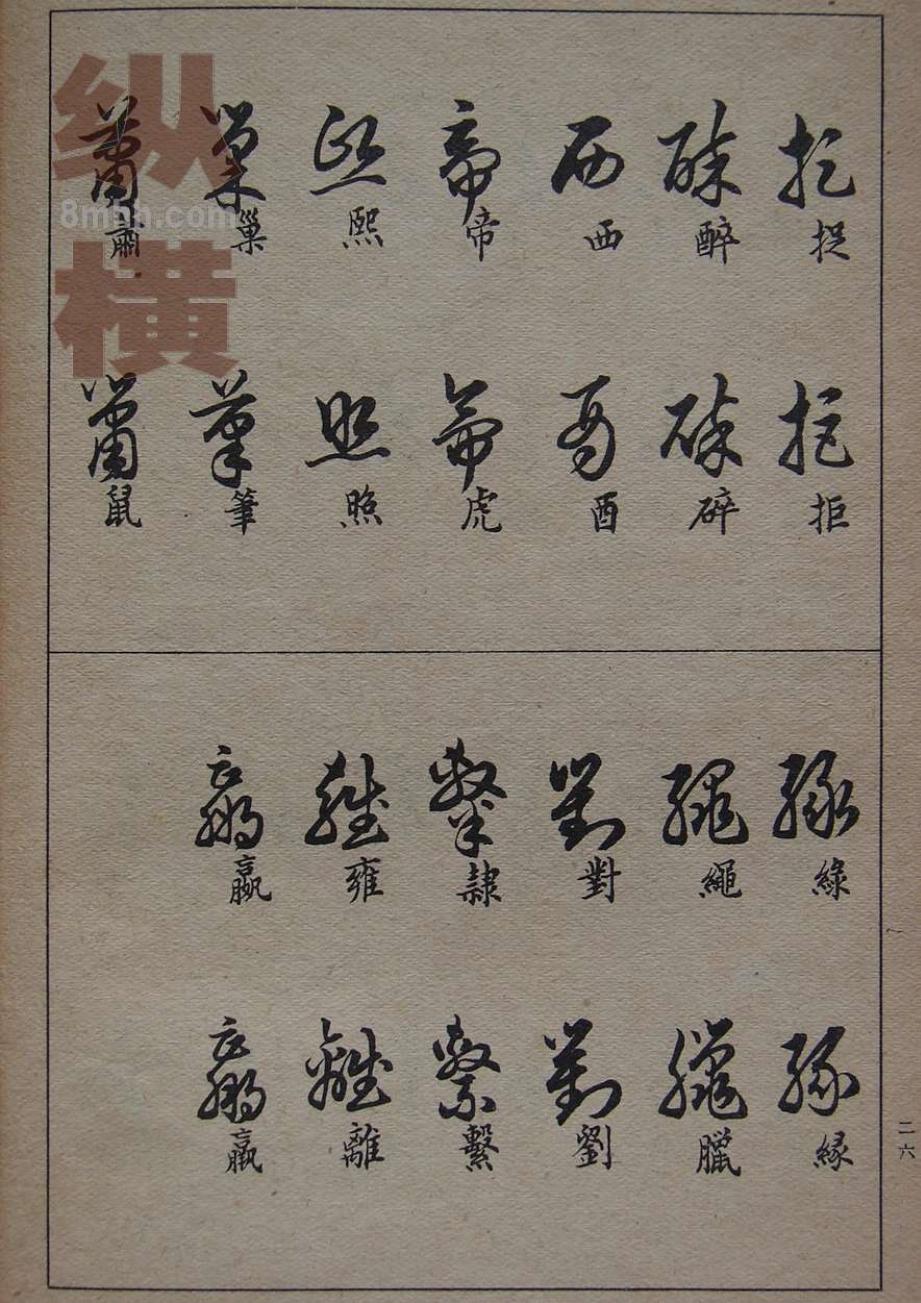 捉
醉
西
帝
熙
巢
肅
拒
碎
酉
虎
照
筆
鼠
綠
繩
對
隸
雍
嬴
緣
臘
劉
繫
離
羸
二六
纵横
8mhh.com